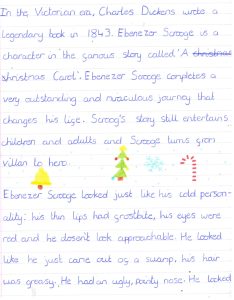 In the Victorian era, Charles Dickens wrote a
legendary book in 1843. Ebenezer Scrooge is a
character in the famous story called 'A christmas
christmas Carol'. Ebenezer Scrooge completes a
very outstanding and miraculous journey that
changes his life. Scroog's story still entertains
children and adults and Scrooge turns from
villan to hero.
Ebenezer Scrooge looked just like his cold person-
ality: his thin lips had frostbite, his eyes were
red and he doesn't look approachable. He looked
like he just came out of a swamp, his hair
was greasy. He had an ugly, pointy nose. He looked